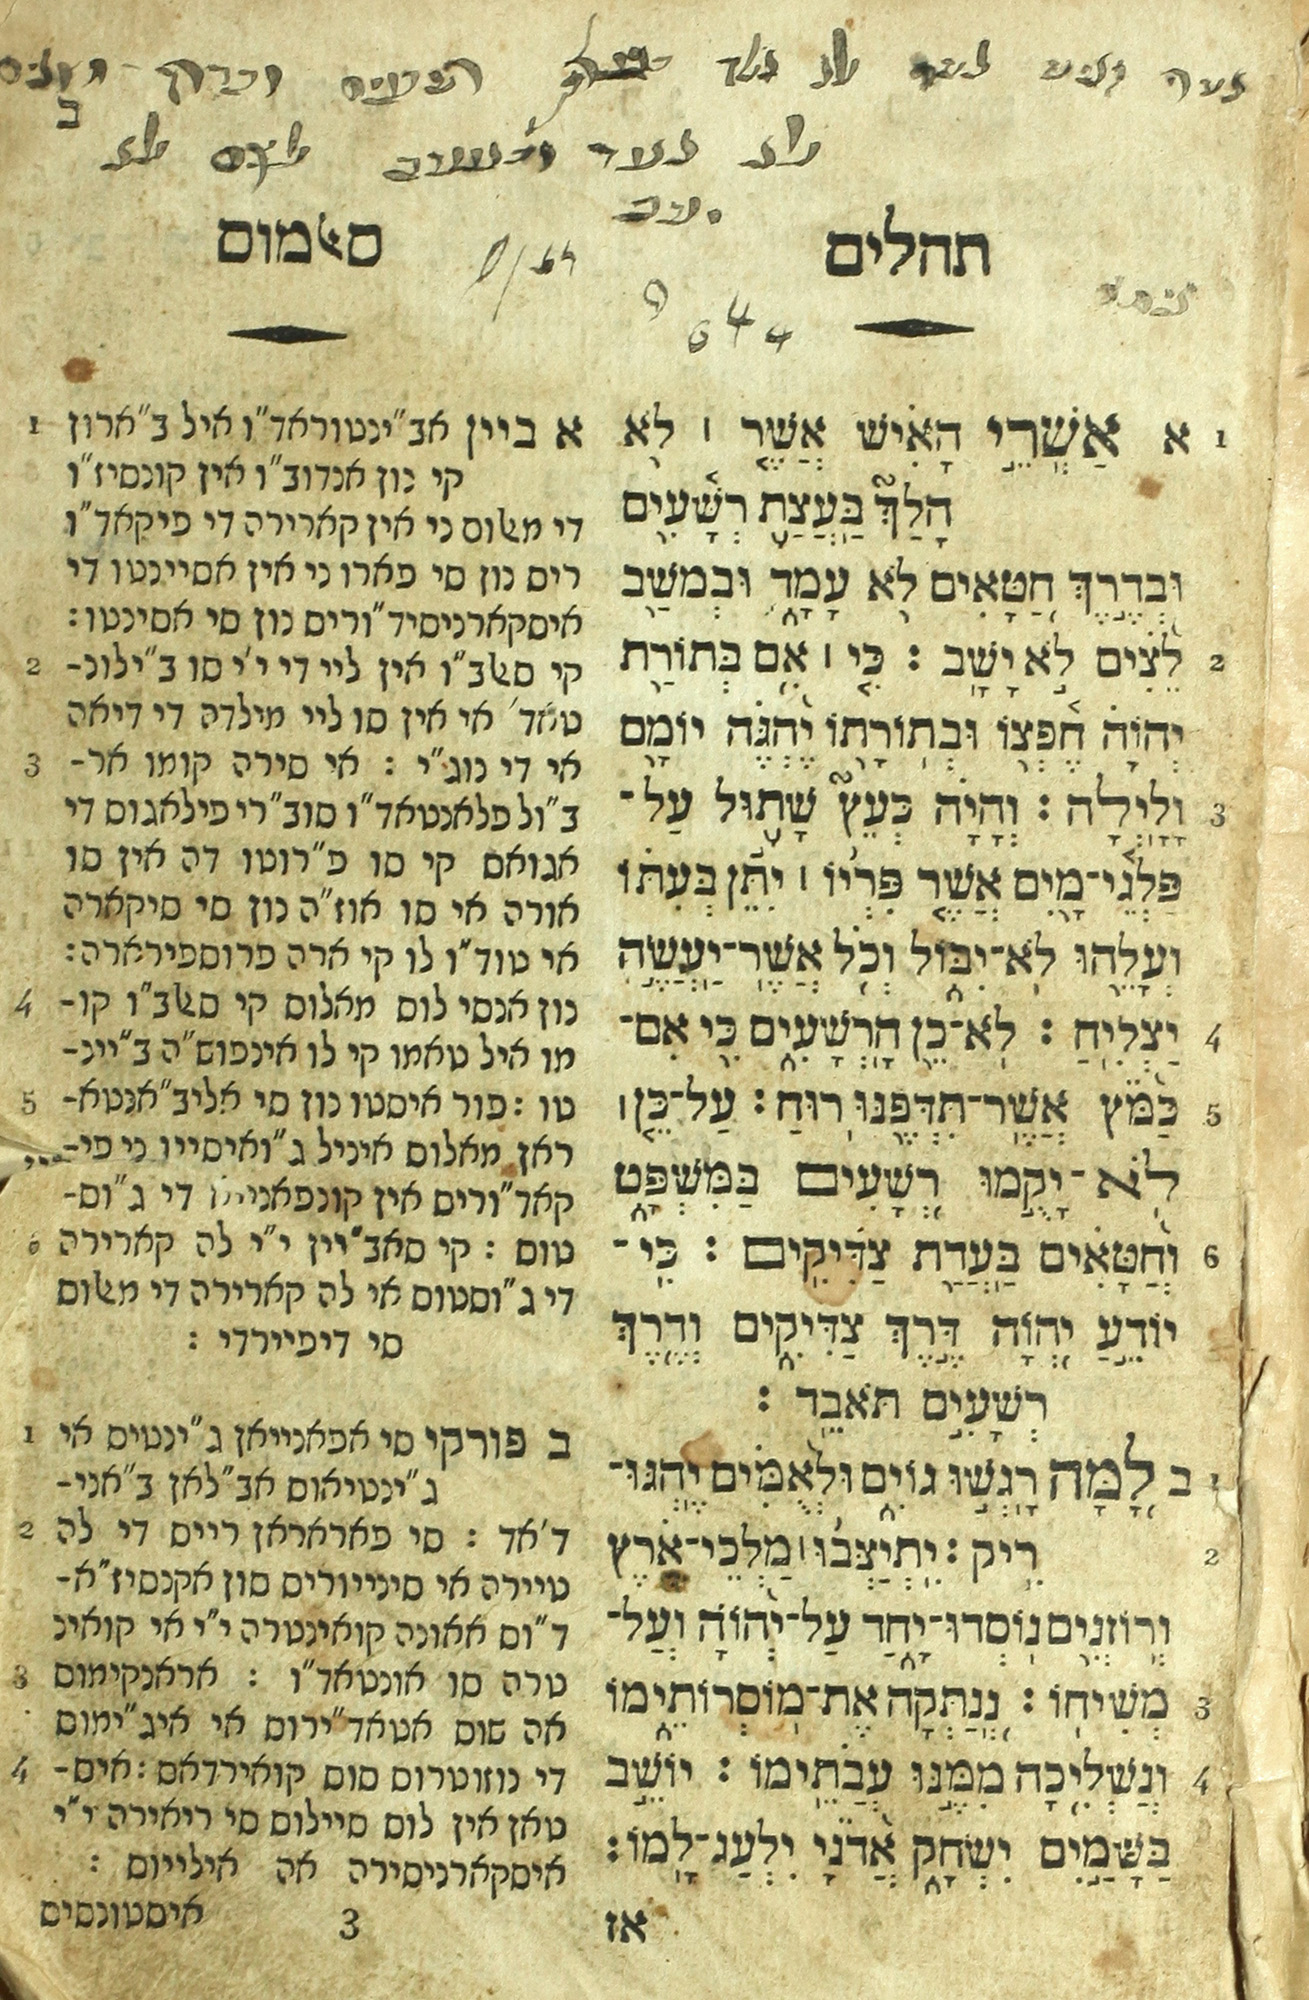 תהלים
סﭏמוס
6 4 4
1 א אַשְׁרֵי הָאִישׁ אֲשֶׁר ׀ לֹא
הָלַךְ בַּעֲצַת רְשָׁעִים
וּבְדֶרֶךְ חַטָּאִים לֹא עָמָד וּבְמֹשַׁב
2 לֵצִים לֹא יָשָׁב : כִּי ׀ אִם בְּתוֹרַת
יְהוָה חֶפְצוֹ וּבְתוֹרָתוֹ יֶהְגֶּה יוֹמָם
3 וָלָיְלָה : וְהָיָה כְּעֵץ שָׁתוּל עַל־
פַּלְגֵי־מָיִם אֲשֶׁר פִּרְיוֹ ׀ יִתֵּן בְּעִתּוֹ
וְעָלֵהוּ לֹא־יִבּוֹל וְכֹל אֲשֶׁר־יַעֲשֶׂה
4 יַצְלִיחַ : לֹא־כֵן הָרְשָׁעִים כִּי אִם־
5 כַּמֹּץ אֲשֶׁר־תִּדְּפֶנּוּ רוּחַ : עַל־כֵּן ׀
לֹא־יָקֻמוּ רְשָׁעִים בַּמִּשְׁפָּט
6 וְחַטָּאִים בַּעֲדַת צַדִּיקִים : כִּי־
יוֹדֵעַ יְהוָה דֶּרֶךְ צַדִּיקִים וְדֶרֶךְ
רְשָׁעִים תֹּאבֵד :
1 ב לָמָּה רָגְשׁוּ גוֹיִם וּלְאֻמִּים יֶהְגּוּ־
2 רִיק : יִתְיַצְּבוּ ׀ מַלְכֵי־אֶרֶץ
וְרוֹזְנִים נוֹסְדוּ־יָחַד עַל־יְהוָה וְעַל־
3 מְשִׁיחוֹ : נְנַתְּקָה אֶת־מוֹסְרוֹתֵימוֹ
4 וְנַשְׁלִיכָה מִמֶּנּוּ עֲבֹתֵימוֹ : יוֹשֵׁב
בַּשָּׁמַיִם יִשְׂחָק אֲדֹנָי יִלְעַג־לָמוֹ :
אז
1 א ביין אב"ינטוראד"ו איל ב"ארון
קי נון אנדוב"ו אין קונסיז"ו
די מﭏוס ני אין קארירה די פיקאד"ו
רים נון סי פארו ני אין אסיינטו די
איסקארניסיד"ורים נון סי אסינטו :
2 קי סﭏב"ו אין ליי די י'י סו ב"ילונ-
טאד' אי אין סו ליי מילדה די דיאה
3 אי די נוג"י : אי סירה קומו אר-
ב"ול פלאנטאד"ו סוב"רי פילאגוס די
אגואס קי סו פ"רוטו דה אין סו
אורה אי סו אוז"ה נון סי סיקארה
אי טוד"ו לו קי ארה פרוספירארה :
4 נון אנסי לוס מאלוס קי סﭏב"ו קו-
מו איל טאמו קי לו אינפוש"ה ב"יינ-
5 טו : פור איסטו נון סי אליב"אנטא-
ראן מאלוס איניל ג"ואיסייו ני פי-
קאד"ורים אין קונפאנייה די ג"וס-
6 טוס : קי סאב"יין י"י לה קארירה
די ג"וסטוס אי לה קארירה די מﭏוס
סי דיפיירדי :
1 ב פורקי סי אפאנייאן ג"ינטיס אי
ג"ינטיאוס אב"לאן ב"אני-
2 ד'אד : סי פאראראן רייס די לה
טיירה אי סינייורים סון אקנסיז"א-
ד"וס אאונה קואינטרה י"י אי קואינ
3 טרה סו אונטאד"ו : אראנקימוס
אה סוס אטאד"ירוס אי איג"ימוס
4 די נוזוטרוס סוס קואירדאס : איס-
טאן אין לוס סיילוס סי ריאירה י"י
איסקארניסירה אה אילייוס :
איסטונסיס
3